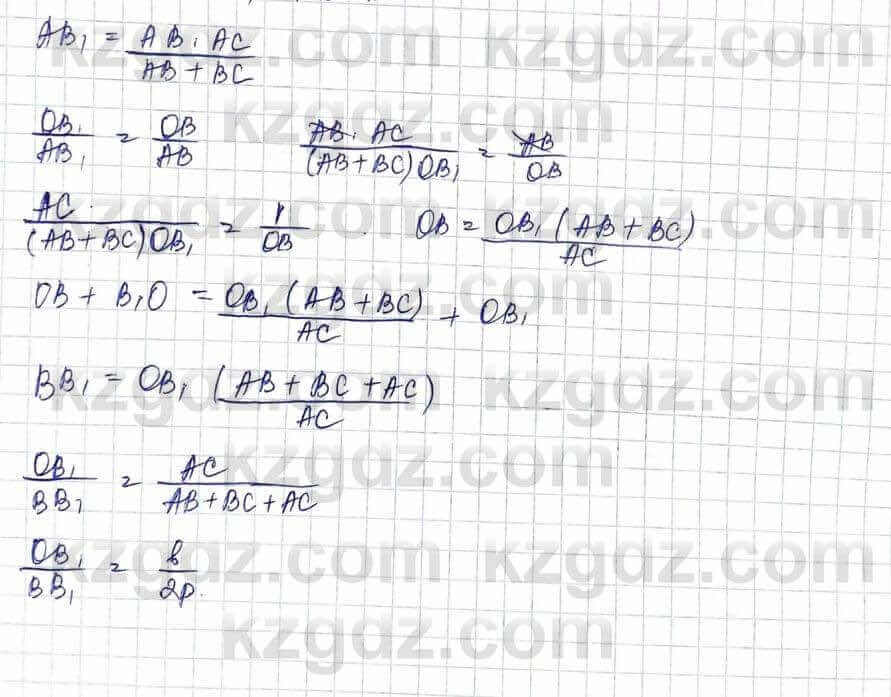 AB₁ = AB · AC / AB + BC
OB₁ / AB₁ = OB / AB    AB · AC / (AB + BC) OB₁ = AB / OB
AC / (AB + BC) OB₁ = 1 / OB .    OB = OB₁ (AB + BC) / AC
OB + B₁O = OB₁ (AB + BC) / AC + OB₁
BB₁ = OB₁ (AB + BC + AC) / AC
OB₁ / BB₁ = AC / AB + BC + AC
OB₁ / BB₁ = b / 2p.
kzgdz.com kzgdz.com
kzgdz.com
kzgdz.com kzgdz.com
kzgdz.com
kzgdz.com kzgdz.com
kzgdz.com
kzgdz.com kzgdz.com
kzgdz.com